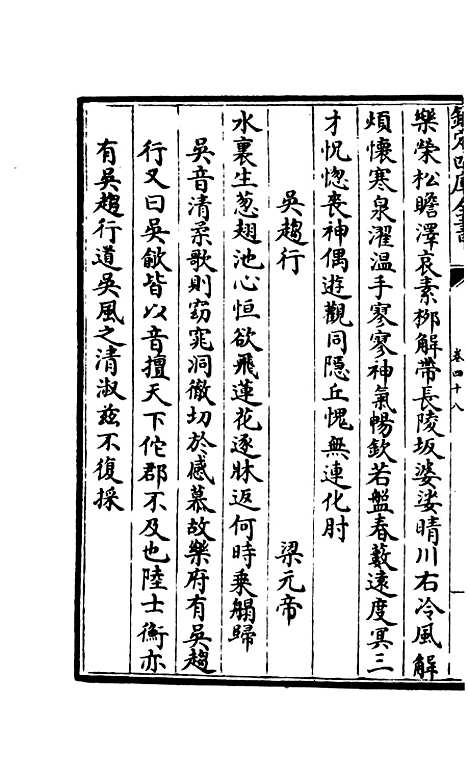 欽定四庫全書
卷四十八
樂榮松瞻澤哀素桞解帶長陵坂婆娑晴川右冷風解
煩懷寒泉濯温手寥寥神氣暢欽若盤春藪逺度冥三
才怳惚喪神偶遊觀同隱丘愧無連化肘
吳趨行 梁元帝
水裏生葱翅池心恒欲飛蓮花逐牀返何時乗鷁歸
吳音清柔歌則窈窕洞徹切於感慕故樂府有吳趨
行又曰吳歈皆以音擅天下佗郡不及也陸士衡亦
有吳趨行道吳風之清淑兹不復採